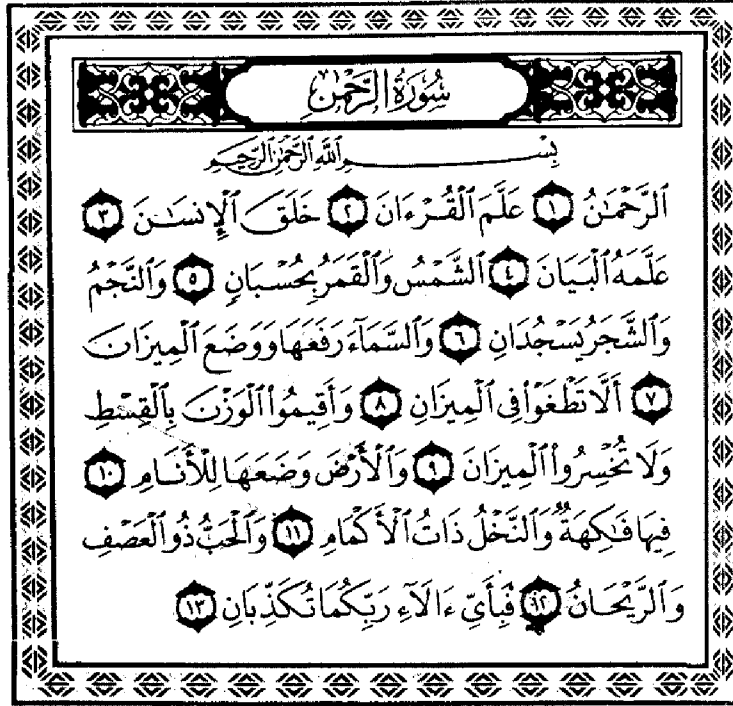 سُورَةُ الرَّحْمٰنِ
بِسْمِ اللَّهِ الرَّحْمَٰنِ الرَّحِيمِ
ٱلرَّحْمَٰنُ ١ عَلَّمَ ٱلْقُرْءَانَ ٢ خَلَقَ ٱلْإِنسَٰنَ ٣
عَلَّمَهُ ٱلْبَيَانَ ٤ ٱلشَّمْسُ وَٱلْقَمَرُ بِحُسْبَانٍ ٥ وَٱلنَّجْمُ
وَٱلشَّجَرُ يَسْجُدَانِ ٦ وَٱلسَّمَآءَ رَفَعَهَا وَوَضَعَ ٱلْمِيزَانَ
٧ أَلَّا تَطْغَوْا۟ فِى ٱلْمِيزَانِ ٨ وَأَقِيمُوا۟ ٱلْوَزْنَ بِٱلْقِسْطِ
وَلَا تُخْسِرُوا۟ ٱلْمِيزَانَ ٩ وَٱلْأَرْضَ وَضَعَهَا لِلْأَنَامِ ١٠
فِيهَا فَٰكِهَةٌ وَٱلنَّخْلُ ذَاتُ ٱلْأَكْمَامِ ١١ وَٱلْحَبُّ ذُو ٱلْعَصْفِ
وَٱلرَّيْحَانُ ١٢ فَبِأَىِّ ءَالَآءِ رَبِّكُمَا تُكَذِّبَانِ ١٣